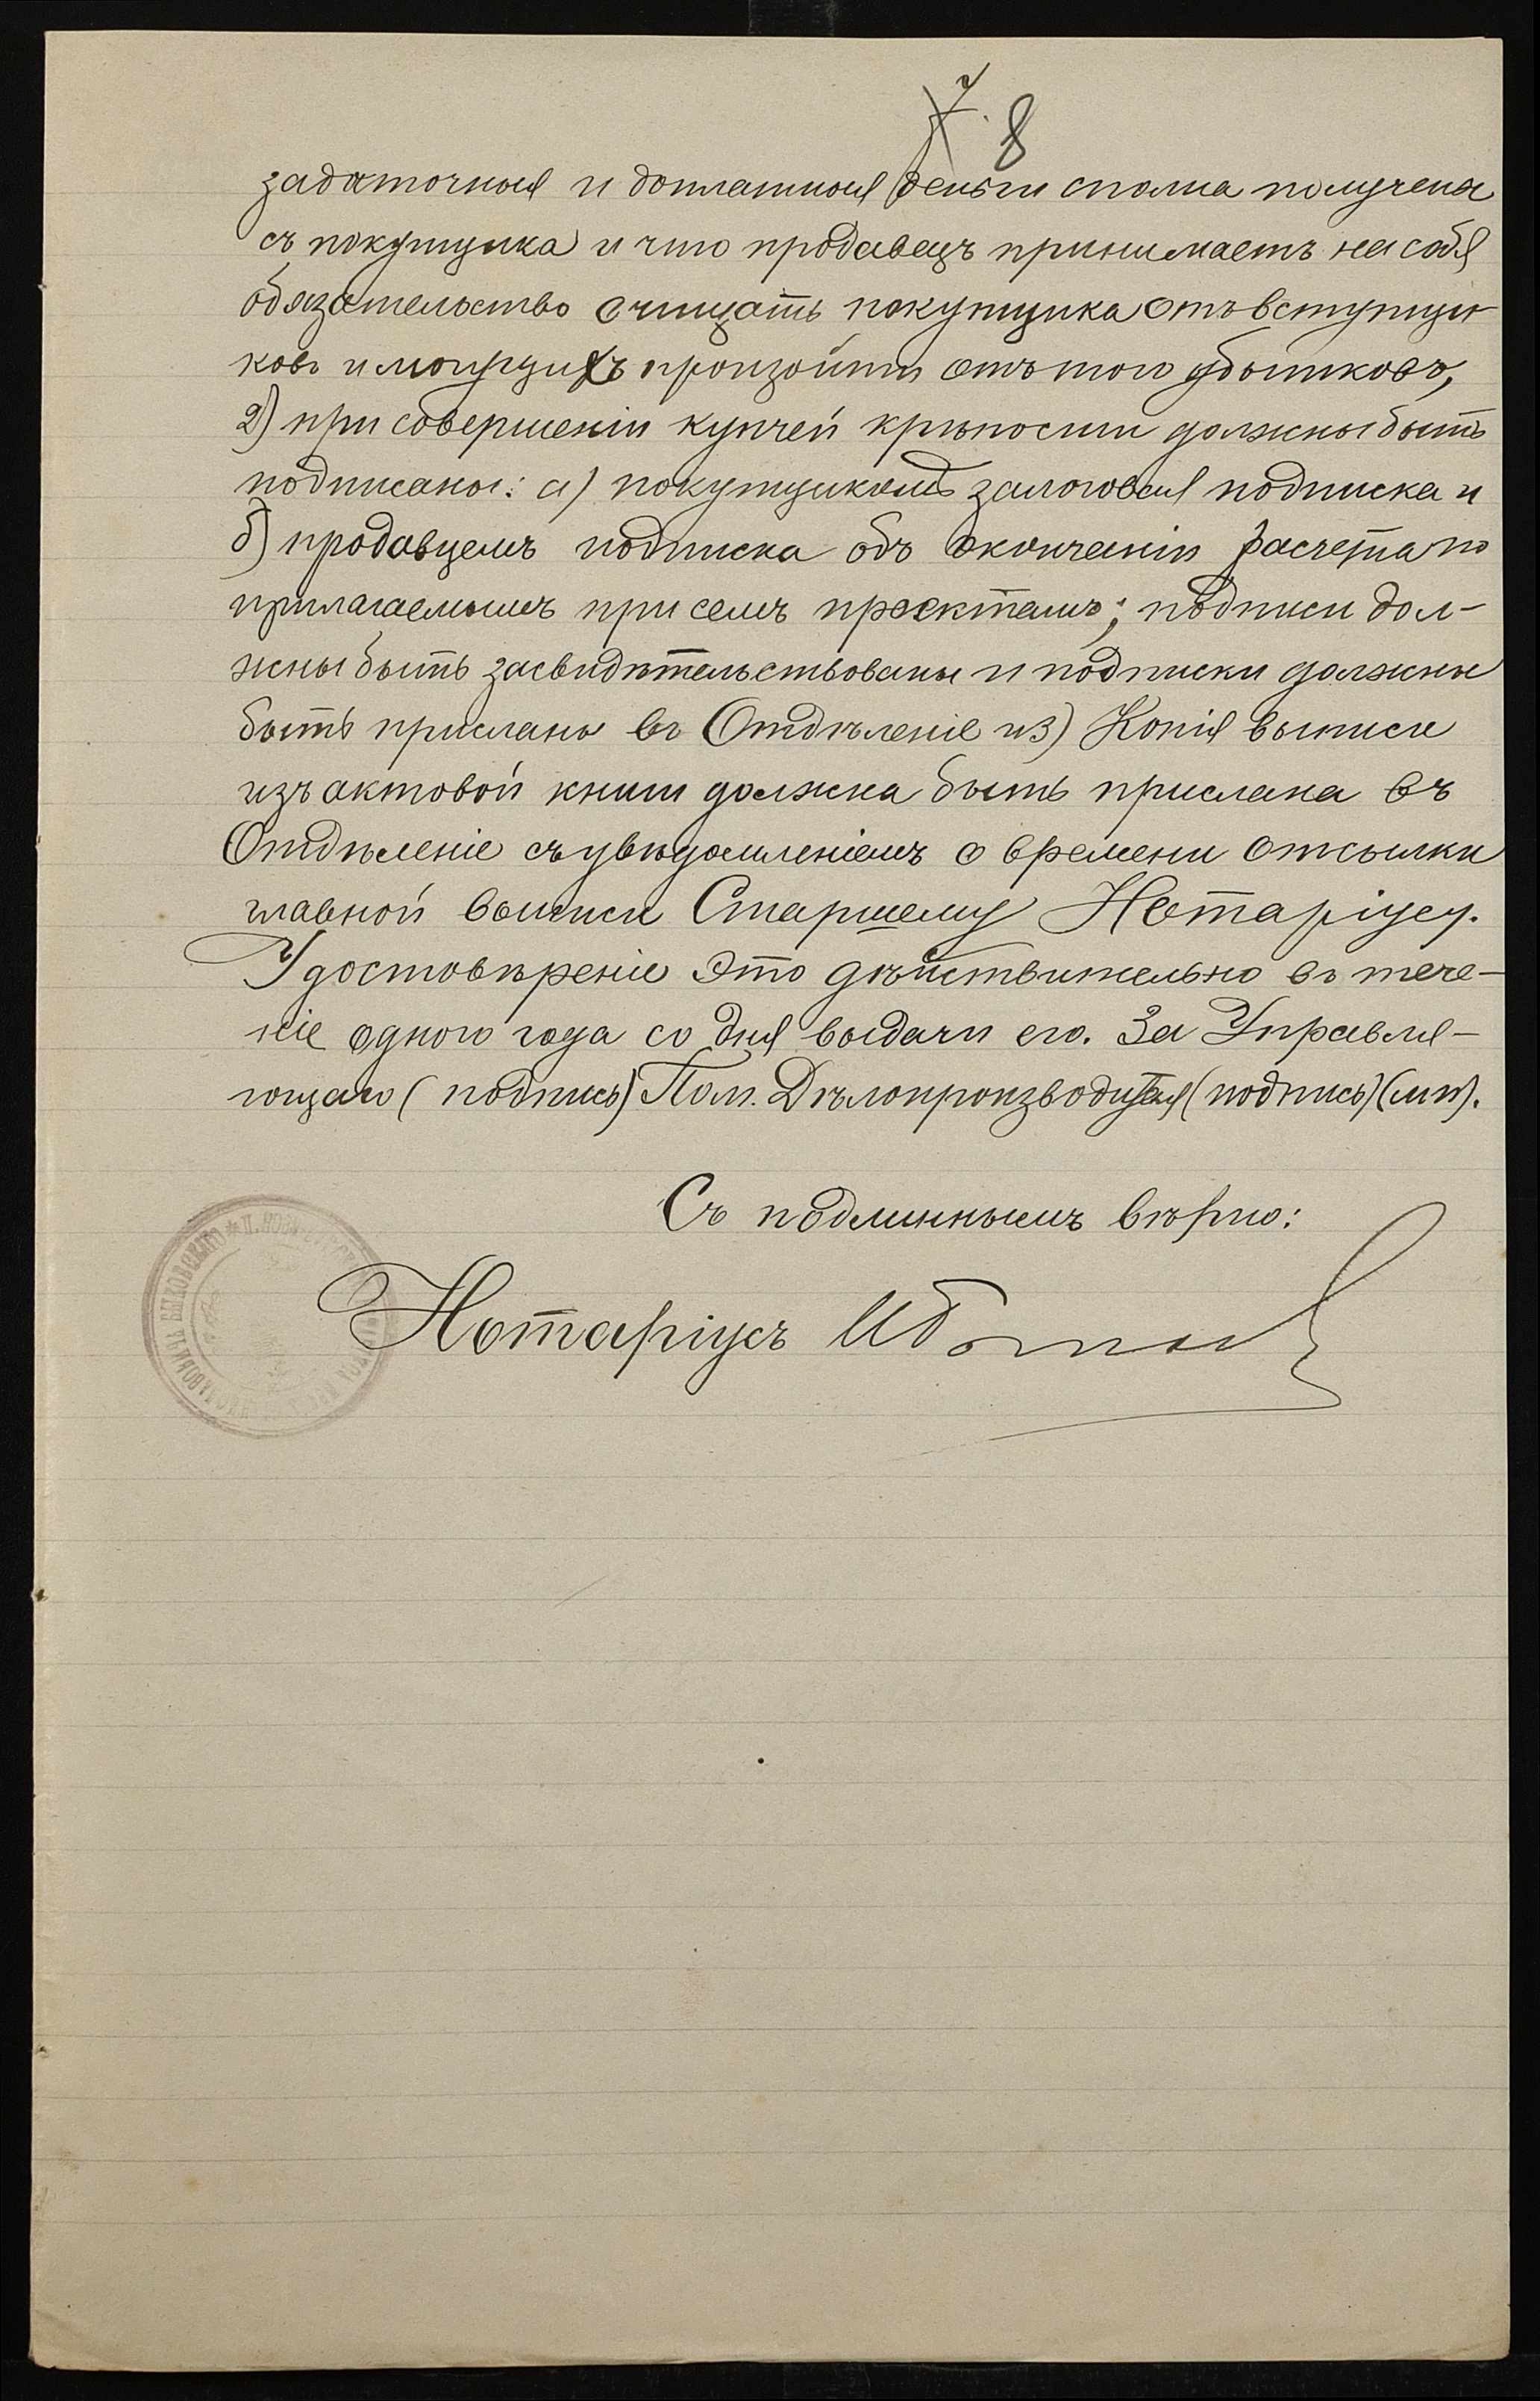 7. 8
задаточныя и доплатныя деньги сполна получены
съ покупщика и что продавецъ принимаетъ на себя
обязательство очищать покупщика отъ вступщи-
ковъ и могущихъ произойти отъ того убытковъ,
2) при совершеніи купчей крѣпости должны быть
подписаны: а) покупщикомъ залоговая подписка и
б) продавцемъ подписка объ окончаніи расчета по
прилагаемымъ при семъ проектамъ; подписи дол-
жны быть засвидѣтельствованы и подписки должны
быть присланы въ Отдѣленіе и 3) Копія выписи
изъ актовой книги должна быть прислана въ
Отдѣленіе съ увѣдомленіемъ о времени отсылки
главной выписи Старшему Нотаріусу.
Удостовѣреніе это дѣйствительно въ тече-
ніе одного года со дня выдачи его. За Управля-
ющаго (подпись) Пом. Дѣлопроизводителя (подпись) (мп).
Съ подлиннымъ вѣрно:
Нотаріусъ